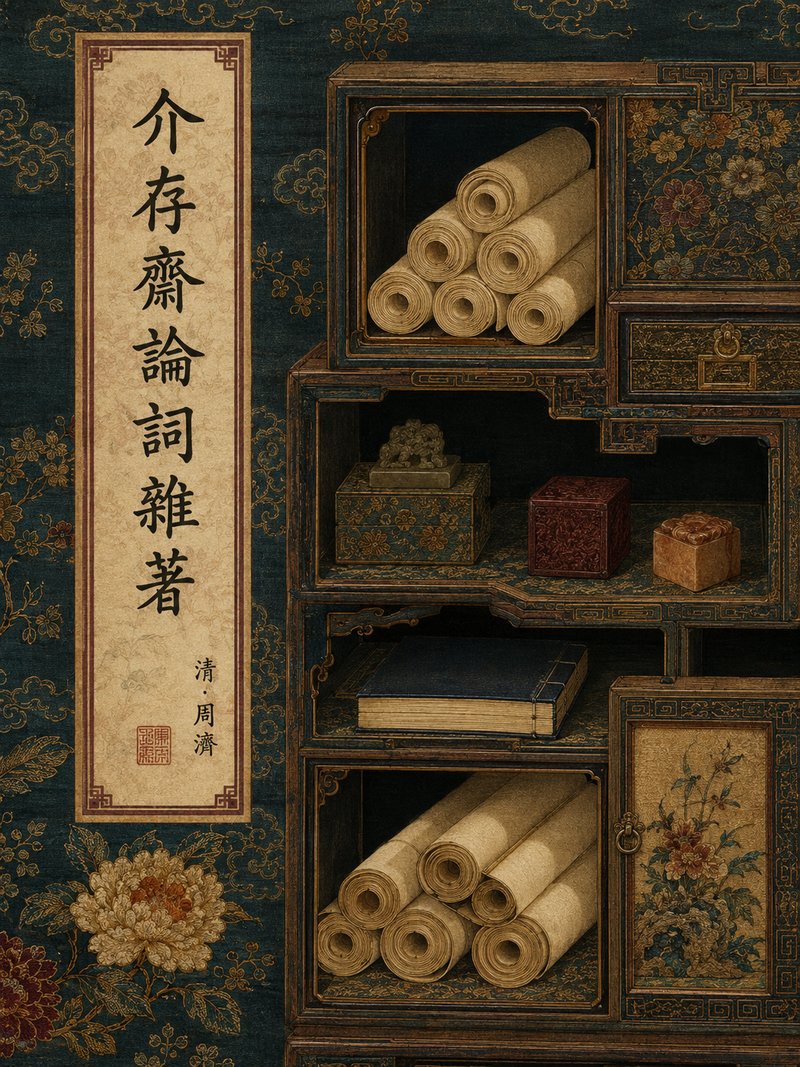 介存齋論詞雜著
清·周濟